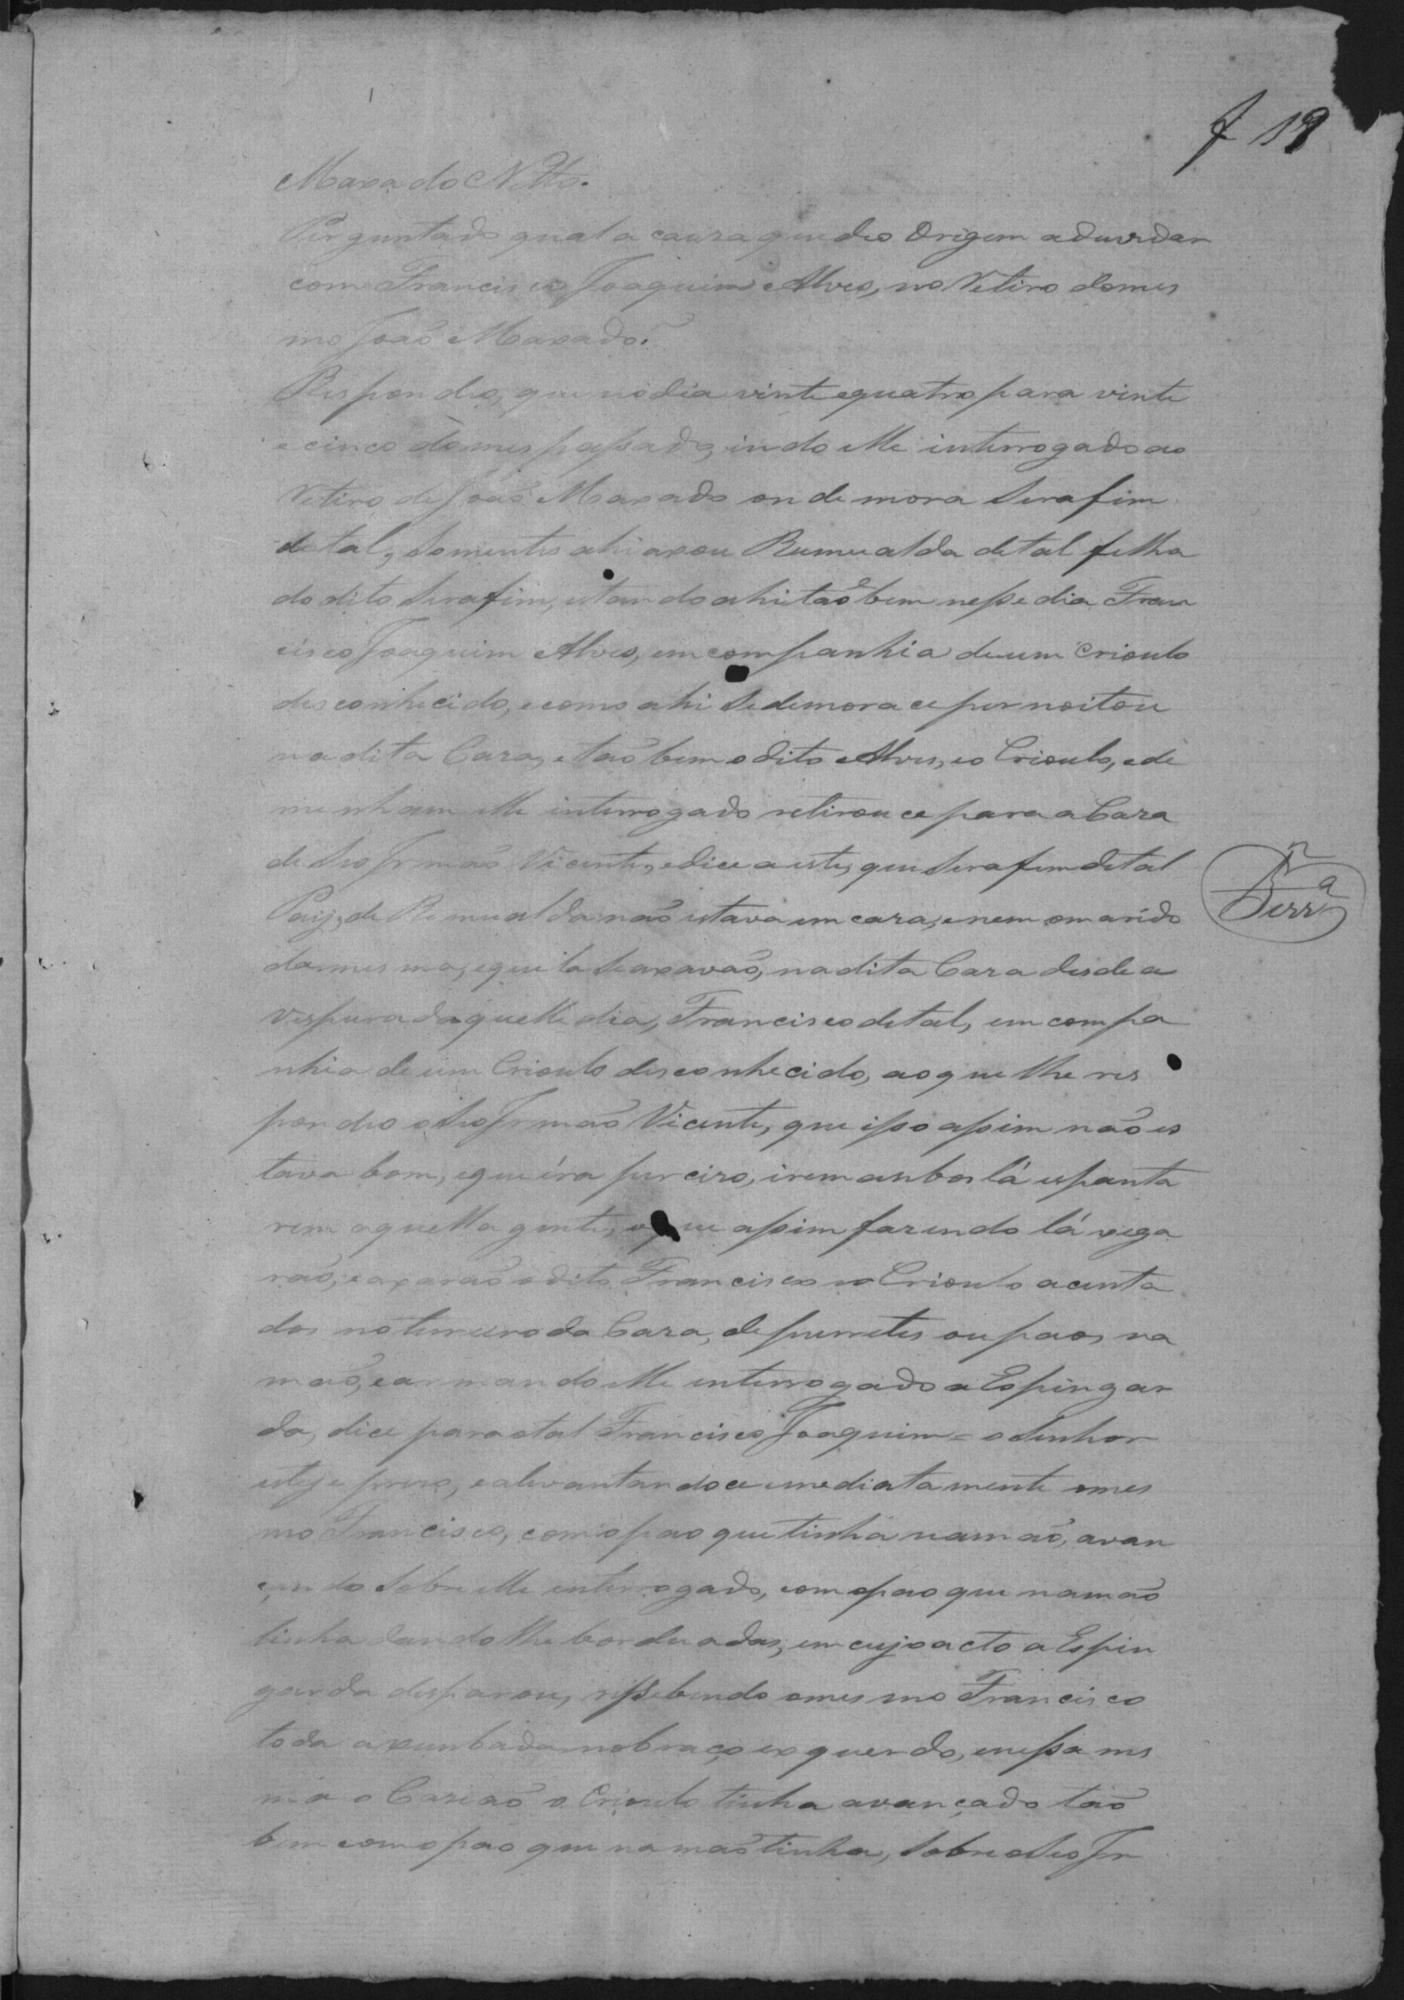 f 19
Maxado Netto.
Perguntado qual a cauza que deo Origem a duvidar
com Francisco Joaquim Alves, no Retiro do mes
mo João Maxado?
Respondeo, que no dia vinte e quatro para vinte
e cinco do mes passado, indo elle interrogado ao
Retiro de João Maxado onde mora Serafim
de tal, somentes ahi axou Rumualda de tal filha
do dito Serafim, estando ahi tão bem nesse dia Fran
cisco Joaquim Alves, em companhia de um Crioulo
desconhecido, e como ahi se demora ce pernoitou
na dita Caza, e tão bem o dito Alves, e o Crioulo, e de
menham elle interrogado retirou ce para a Caza
de seo Irmão Vicente, e dice a este, que Serafim de tal
Pay, de Rumualda não estava em caza, e nem o marido
da mesma, e que la se axavão, na dita Caza desde a
vespera daquelle dia, Francisco de tal, em compa
nhia de um Crioulo desconhecido, ao que lhe res
pondeo o seo Irmão Vicente, que isso assim não es
tava bom, e que éra perciso, irem ambos lá espanta
rem aquella gente, o que assim fazendo lá xega
rão, e axarão o dito Francisco e o Crioulo acenta
dos no terreiro da Caza, de porretes ou paos na
mão, e armando elle interrogado a Espingar
da, dice para o tal Francisco Joaquim = o Senhor
esteje prezo, e alevantando ce imediatamente o mes
mo Francisco, com o pao que tinha na mão, avan
çando sobre elle interrogado, com o pao que na mão
tinha dando lhe borduadas, em cujo acto a Espin
garda disparou, ressebendo o mesmo Francisco
toda a xumbada no braço exquerdo, e nessa mes
ma o Cazião o Crioulo tinha avançado tão
bem com o pao que na mão tinha, sobre o seo Ir
Bezrª